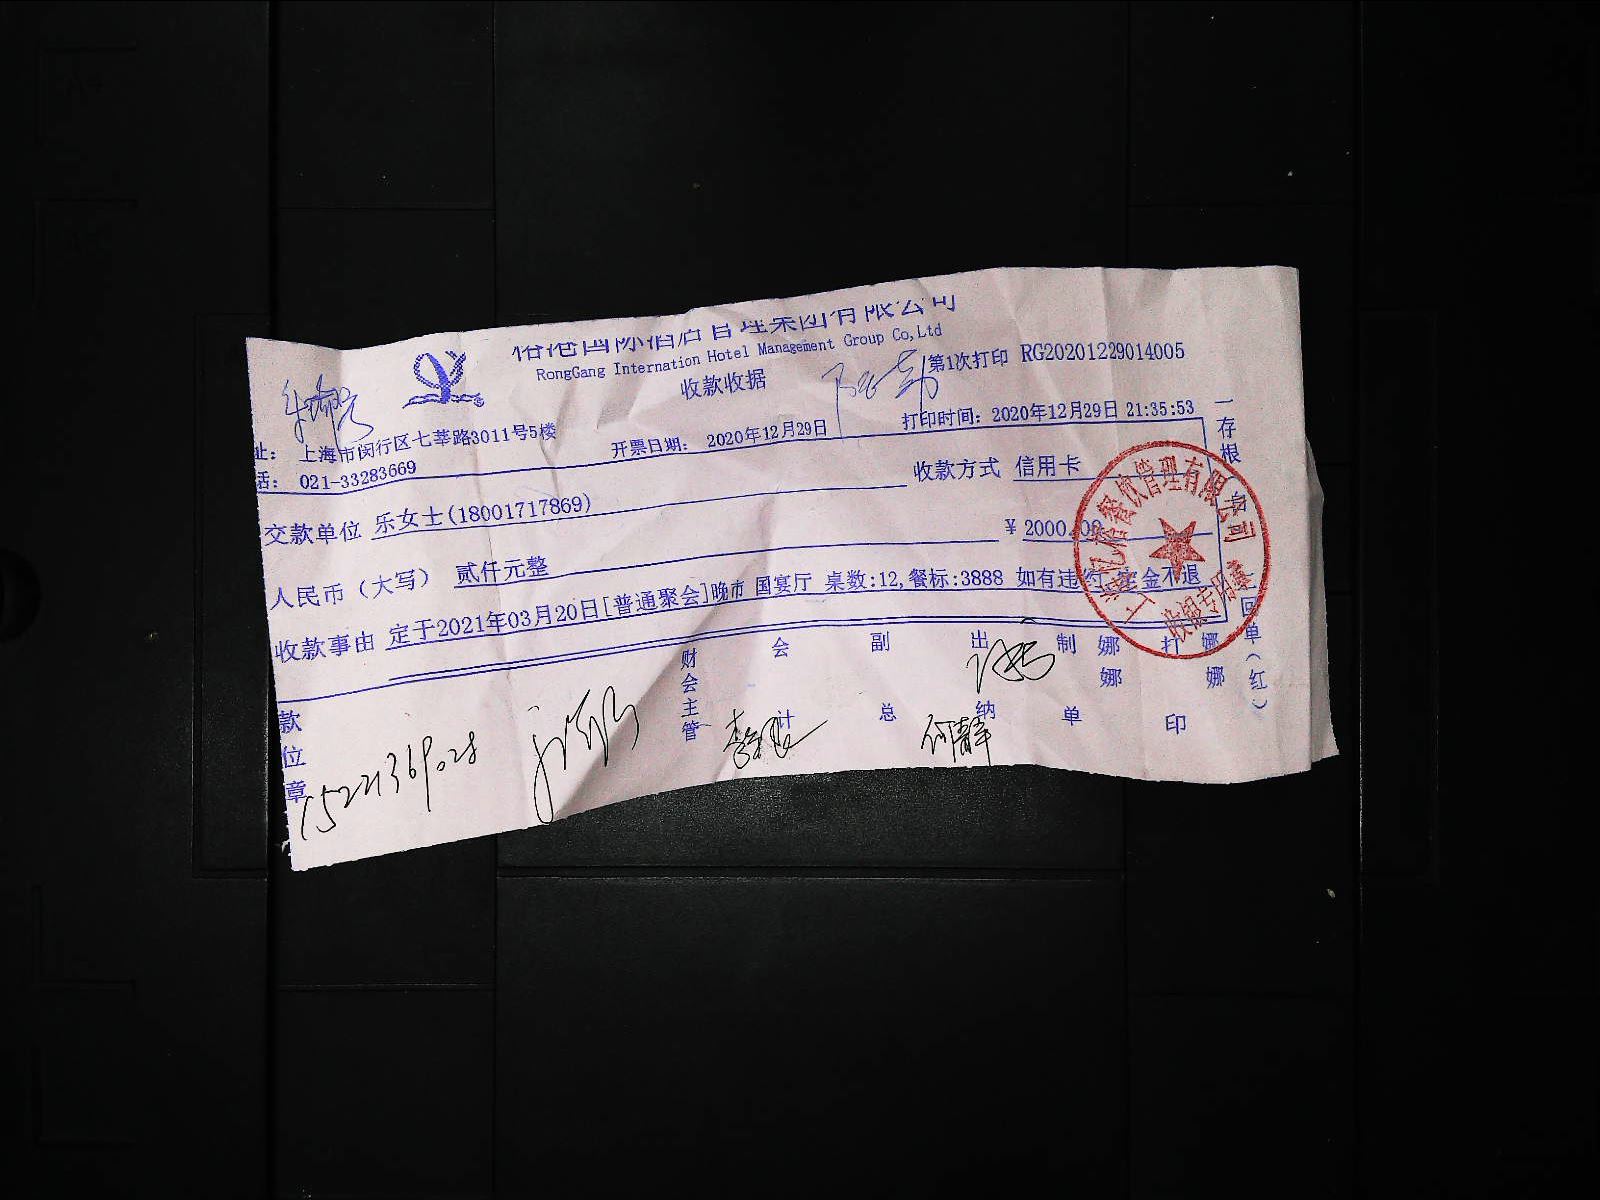 国际酒店管理集团有限公司
RongGang Internation Hotel Management Group Co,Ltd
收款收据
第1次打印 RG20201229014005
址： 上海市闵行区七莘路3011号5楼
开票日期： 2020年12月29日
打印时间： 2020年12月29日 21:35:53
话： 021-33283669
收款方式 信用卡
交款单位 乐女士(18001717869)
人民币（大写） 贰仟元整
￥2000.00
收款事由 定于2021年03月20日[普通聚会]晚市 国宴厅 桌数:12,餐标:3888 如有违约,定金不退
款位章
15221369028
财会主管
会计
副总
出纳
何静
制单
娜娜
打印
娜娜
一存根
回单（红）
餐饮管理有限公司